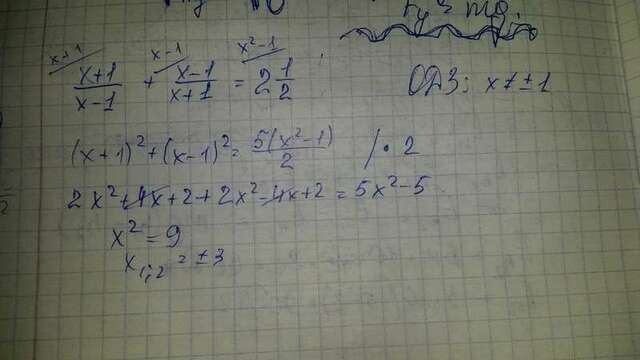 x+1 x-1 x²-1
x+1/x-1 + x-1/x+1 = 2 1/2 ; ОДЗ: x≠±1
(x+1)²+(x-1)²= 5(x²-1)/2 /•2
2x²+4x+2+2x²-4x+2=5x²-5
x²=9
x1;2=±3